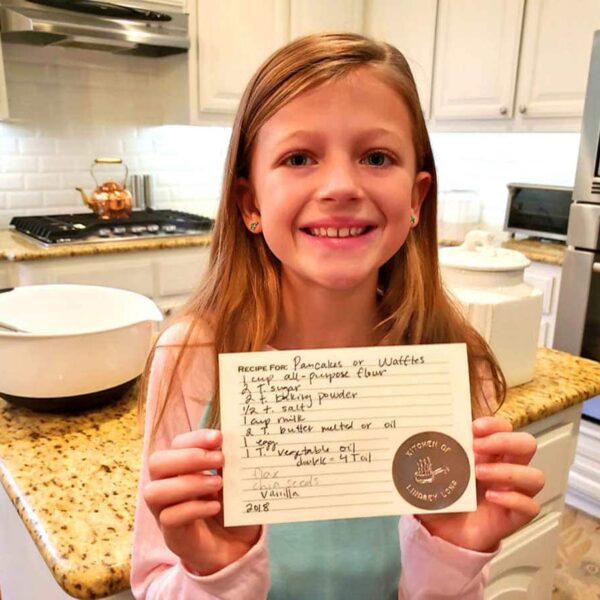 RECIPE FOR: Pancakes or Waffles
1 cup all-purpose flour
2 T. sugar
2 t. baking powder
1/2 t. salt
1 cup milk
2 T. butter melted or oil
egg
1 T. vegetable oil
double = 4 T oil
flax
chia seeds
Vanilla
2018
KITCHEN OF
LINDSEY LONG